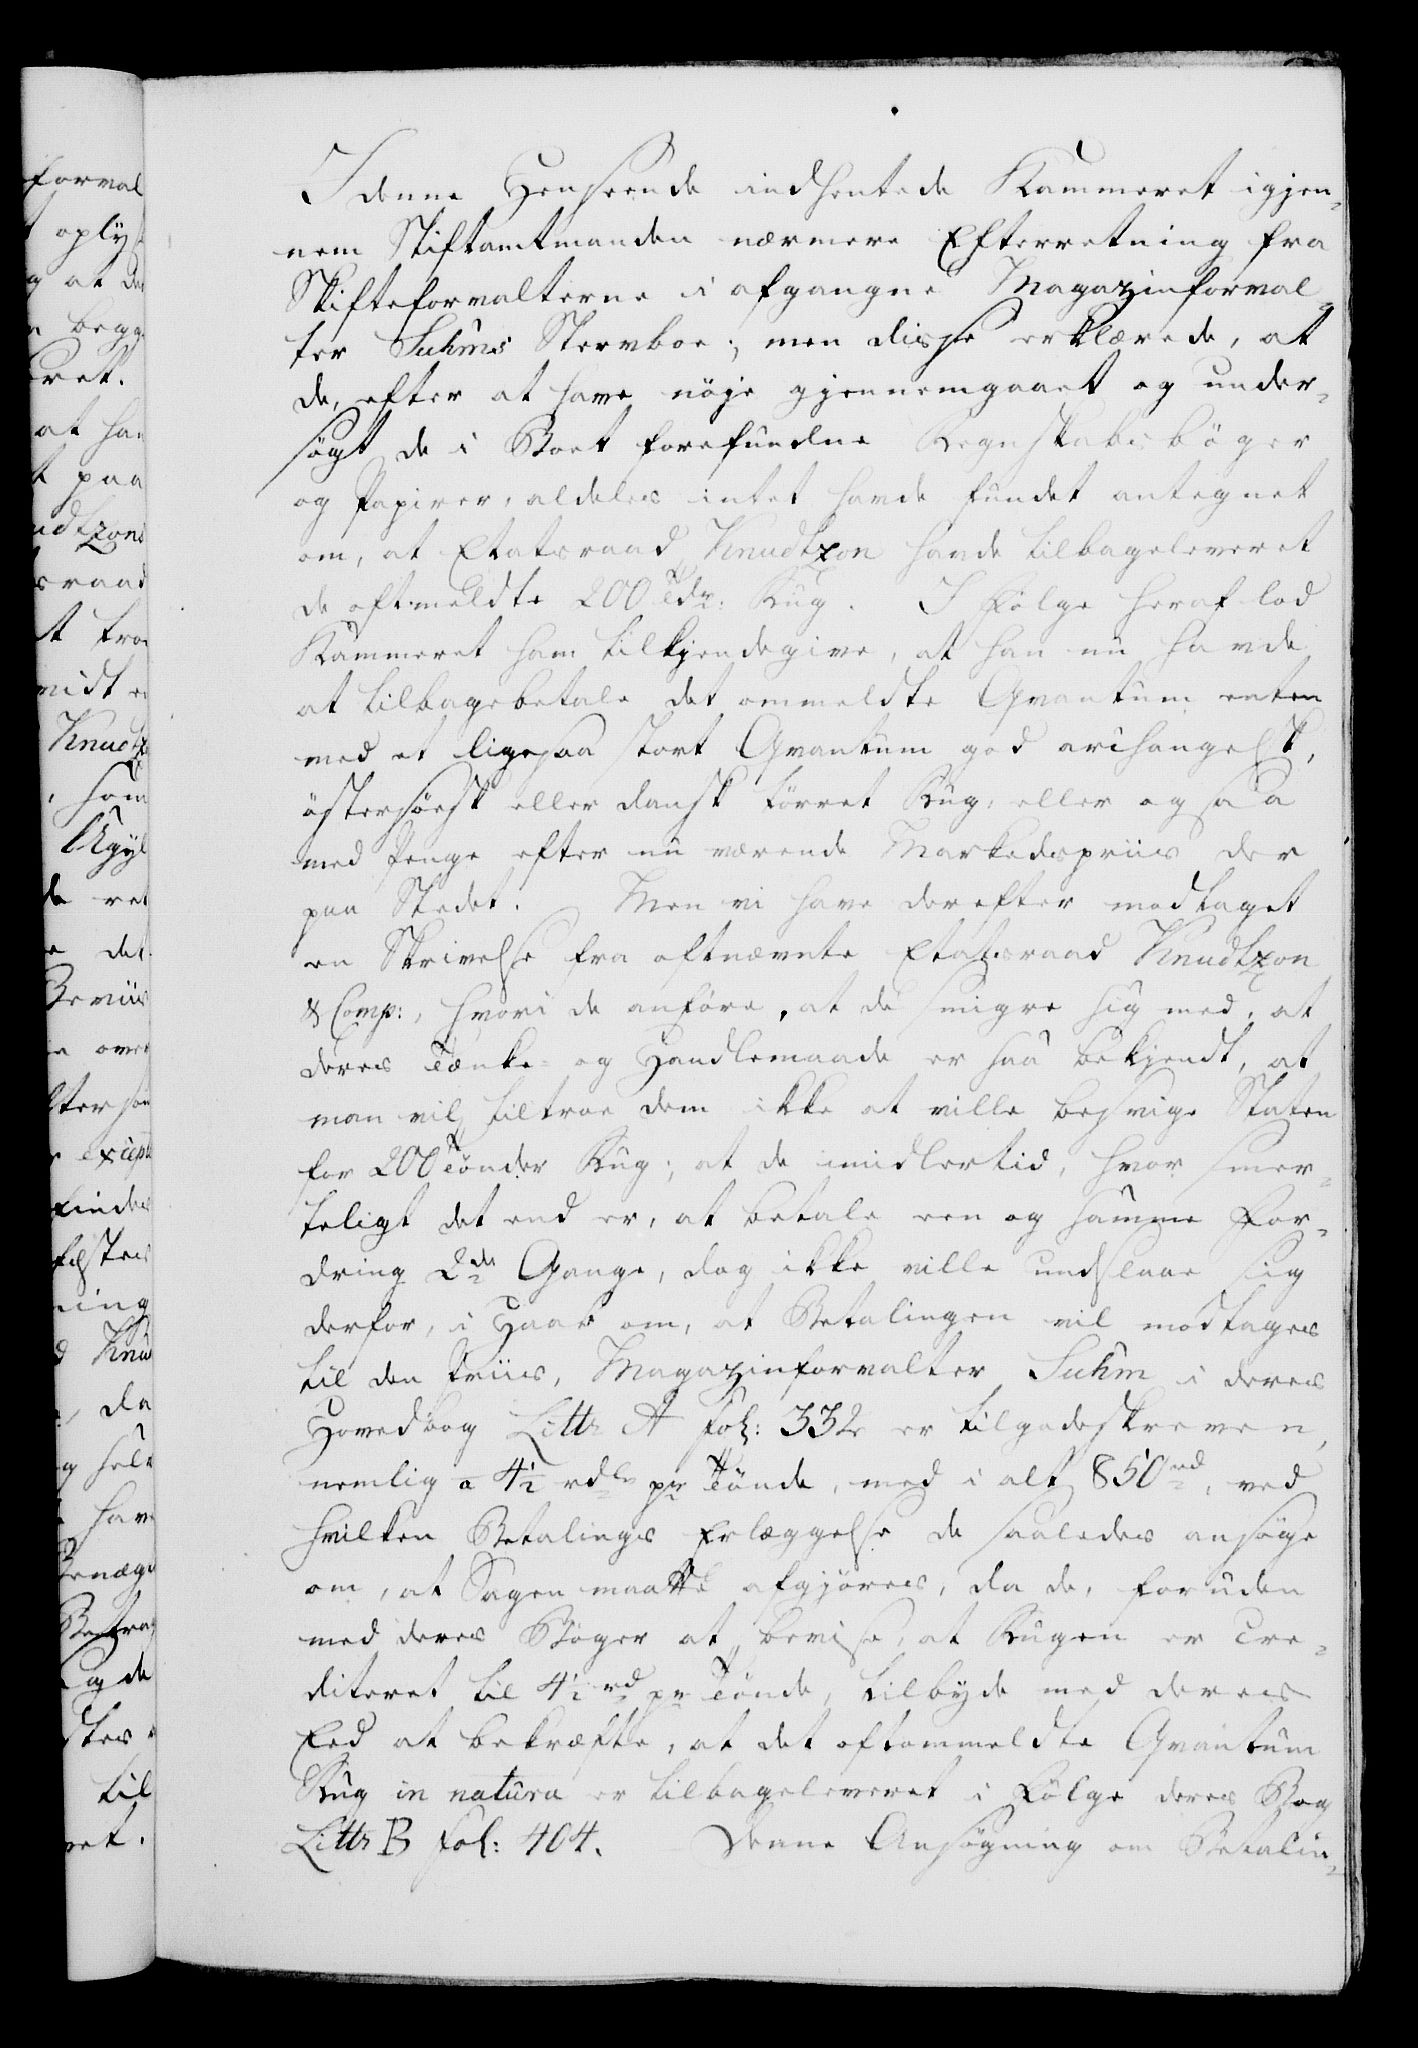 I denne Henseende indhentede Kammeret igjen-
nem Stiftamtmanden nærmere Efterretning fra
Skifteforvalterne i afgangne Magazinforval-
ter Suhms Sterboe; men disse erklærede, at
de, efter at have nöje gjennemgaaet og under-
søgt de i Boet forefundne Regnskabsböger
og Papirer, aldeles intet havde fundet antegnet
om, at Etatsraad Knudtzon havde tilbageleveret
de oftmeldte 200 Tdr: Rug. I Fölge heraf lod
Kammeret ham tilkjendegive, at han nu havde
at tilbagebetale det ommeldte Qvantum enten
med et ligesaa stort Qvantum god archangelsk,
östersöisk eller dansk törret Rug, eller ogsaa
med Penge efter nu værende Markedspriis der
paa Stedet. Men vi have derefter modtaget
en Skrivelse fra oftnævnte Etatsraad Knudtzon
& Comp:, hvori de anföre, at de smigre sig med, at
deres Tænke- og Handlemaade er saa bekjendt, at
man vil tiltroe dem ikke at ville besvige Staten
for 200 Tönder Rug; at de imidlertid, hvor smer-
teligt det end er, at betale een og samme For-
dring 2de Gange, dog ikke ville undslaae sig
derfor, i Haab om, at Betalingen vil modtages
til den Priis, Magazinforvalter Suhm i deres
Hovedbog Littr A Fol: 332 er tilgodeskreven,
nemlig a 4½ rdlr pr Tönde, med i alt 850 rd, ved
hvilken Betalings Erlæggelse de saaledes ansöge
om, at Sagen maatte afgjöres, da de, foruden
med deres Böger at bevise, at Rugen er cre-
diteret til 4½ rd pr Tönde, tilbyde med deres
Eed at bekræfte, at det oftommeldte Qvantum
Rug in natura er tilbageleveret i Fölge deres Bog
Littr B Fol: 404. Denne Ansögning om Betalin-